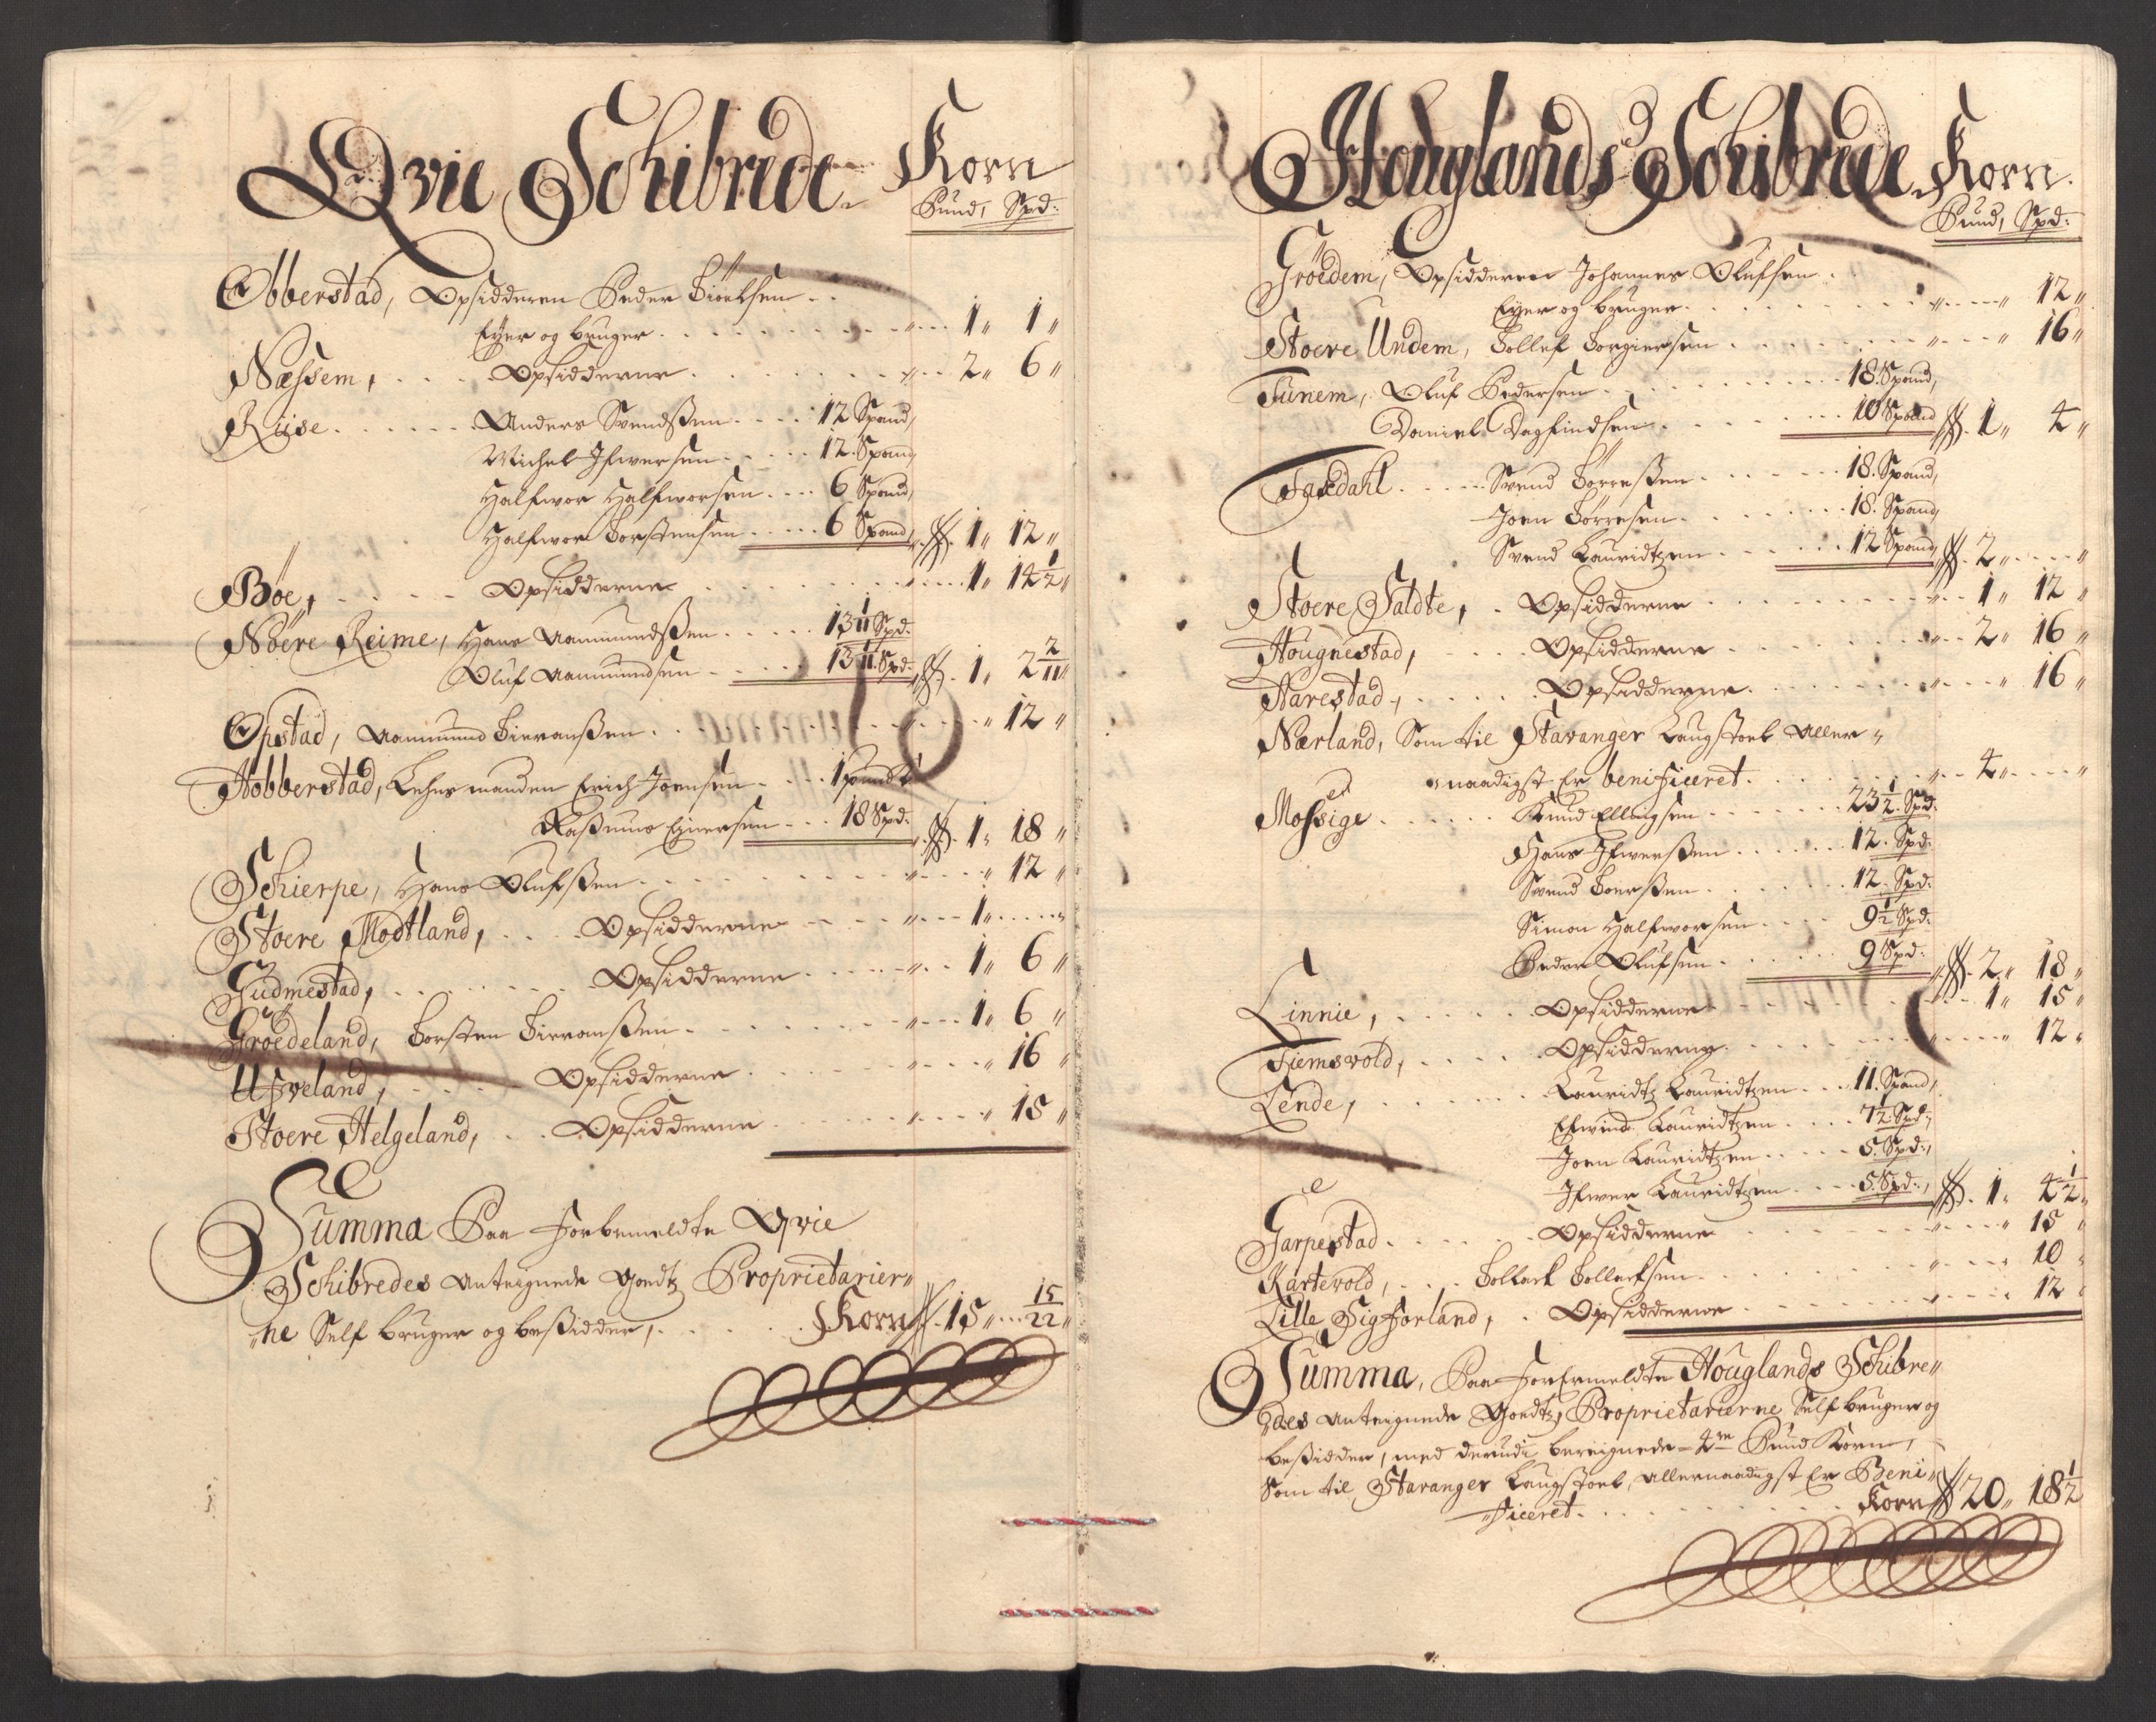 Qvie Schibrede Korn
Pund, Spd:
Obberstad, Opsidderen Peder Tiœlsen . .
Eÿer og bruger . . . . . . . . . „ . . . 1„ 1„
Næssem, . . . Opsidderne . . . . . . „ . . 2„ 6„
Riise . . . . . . Anders Svendßen . . . . 12 Spand,
Michel Ifwersen . . . . . 12. Spand,
Halfwor Halfworsen . . . . 6 Spand,
Halfwor Torstensen . . . . . 6 Spand, 1„ 12„
Böe, . . . . . Opsidderne . . . . . . . . . 1„ 14½„
Nöere Reime, Hans Aamundßen . . . . . 13 1/11 Spd:
Oluf Aamundsen . . . . 13 1/11 Spd: 1„ 2 2/11„
Opstad, Aamund Sieranßen . . . . . . . . . „ 12„
Hobberstad, Lehnsmanden Erich Joensen . . . 1 pund
Raßmus Ejnersen . . . 18 Spd: 1„ 18„
Schierpe, Hans Olufßen . . . . . . . . „ . . . „ 12„
Stoere Modtland, . . . Opsidderne . . . „ . . . 1„ . . . . „
Gudmestad, . . . . . . . Opsidderne . . . . . „ . . 1„ 6„
Gröedeland, Torsten Sieranßen . . . . . . . „ . . . 1„ 6„
Ufveland, . . . . . Opsidderne . . . . . . „ . . . „ 16„
Stoere Helgeland, . . . Opsidderne . . . . . . „ . . . „ 15„
Summa Paa forbemeldte Qvie
Schibredes Anteignede Goedtz Proprietarier„
„ne Self bruger og beßidder, . . . . . Korn 15„ . . . 15/22„
Houglands Schibrede Korn.
Pund, Spd:
Gröedem, Opsidderen Johannes Olufsen . .
Eyer og bruger . . . . . . . . „ . . . „ 12„
Stoere Undem, Tollef Torgiersen . . . . . . . „ . . . „ 16„
Tunem, Oluf Pedersen . . . . . . . . . . 18. Spand,
Daniel Dagfindsen . . . . . . . 10 Spand 1„ 4„
Svend Törreßen . . . . . . 18. Spand,
Joen Törresen . . . . . . . 18. Spand,
Svend Lauridtzen . . . . . . 12 Spand, 2„ . . . . „
Stoere Saldte, . . Opsidderne . . . . . . . „ . . 1„ 12„
Hougnestad, . . . . Opsidderne . . . . . . . „ . . 2„ 16„
Narestad, . . . . . . Opsidderne . . . . . . . „ . . . „ 16„
Nærland, Som til Stavanger Laugstoel Aller„
„naadigst Er benificeret . . . . . . . „ . . 4„ . . . . „
Mossige . . . . . . Knud Ellingsen . . . . . . . 23½. Spd:
Hans Ifwerßen . . . . . . 12. Spd:
Svend Toerßen . . . . . . 12. Spd:
Simon Halfworsen . . . . 9½ Spd:
Peder Olufsen . . . . . . . 9 Spd: 2„ 18„
Linnie, . . . . . . Opsidderne . . . . . . . „ . . . 1„ 15„
Tiemsvold, . . . . . Opsidderne . . . . . . . „ . . . „ 12„
Lende, . . . . . . . Lauridtz Lauridtzen . . . 11. Spand,
Efwind Lauridtzen . . . . 7½. Spd:,
Joen Lauridtzen . . . . . 5. Spd:,
Ifwer Lauridtzen . . . . 5. Spd:, 1„ 4½„
Garpestad . . . . . . Opsidderne . . . . . . . „ . . . „ 15„
Kartevold, . . . Tollack Tollacksen . . . . . . „ . . . „ 10„
Lille Sigforland, . Opsidderne . . . . . . . „ . . . „ 12„
Summa, Paa forErmeldte Houglands Schibre„
„des Anteignede Goedtz, Proprietarierne Self bruger og
beßidder, med derudi bereignede 4re Pund Korn,
Som til Stavanger Laugstoel, Allernaadigst Er Beni„
„ficeret . . . . . . . . . . Korn 20„ 18½